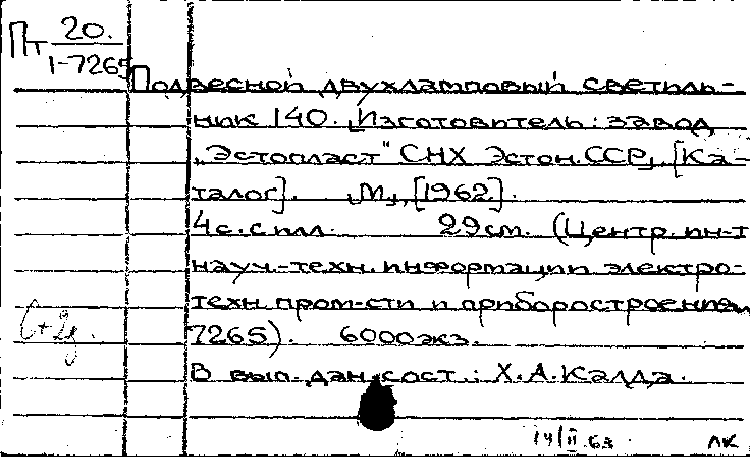 Пт 20.
1-7265
Подвесной двухламповый светиль-
ник 140. Изготовитель: завод
„Эстопласт" СНХ Эстон.ССР, [Ка-
талог]. М., [1962].
4 с. с илл. 29 см. (Центр. ин-т
науч.-техн. информации электро-
техн. пром-сти и приборостроения
7265). 6000 экз.
В вып. дан. сост.: Х.А. Калда.
14/II 63 ЛК